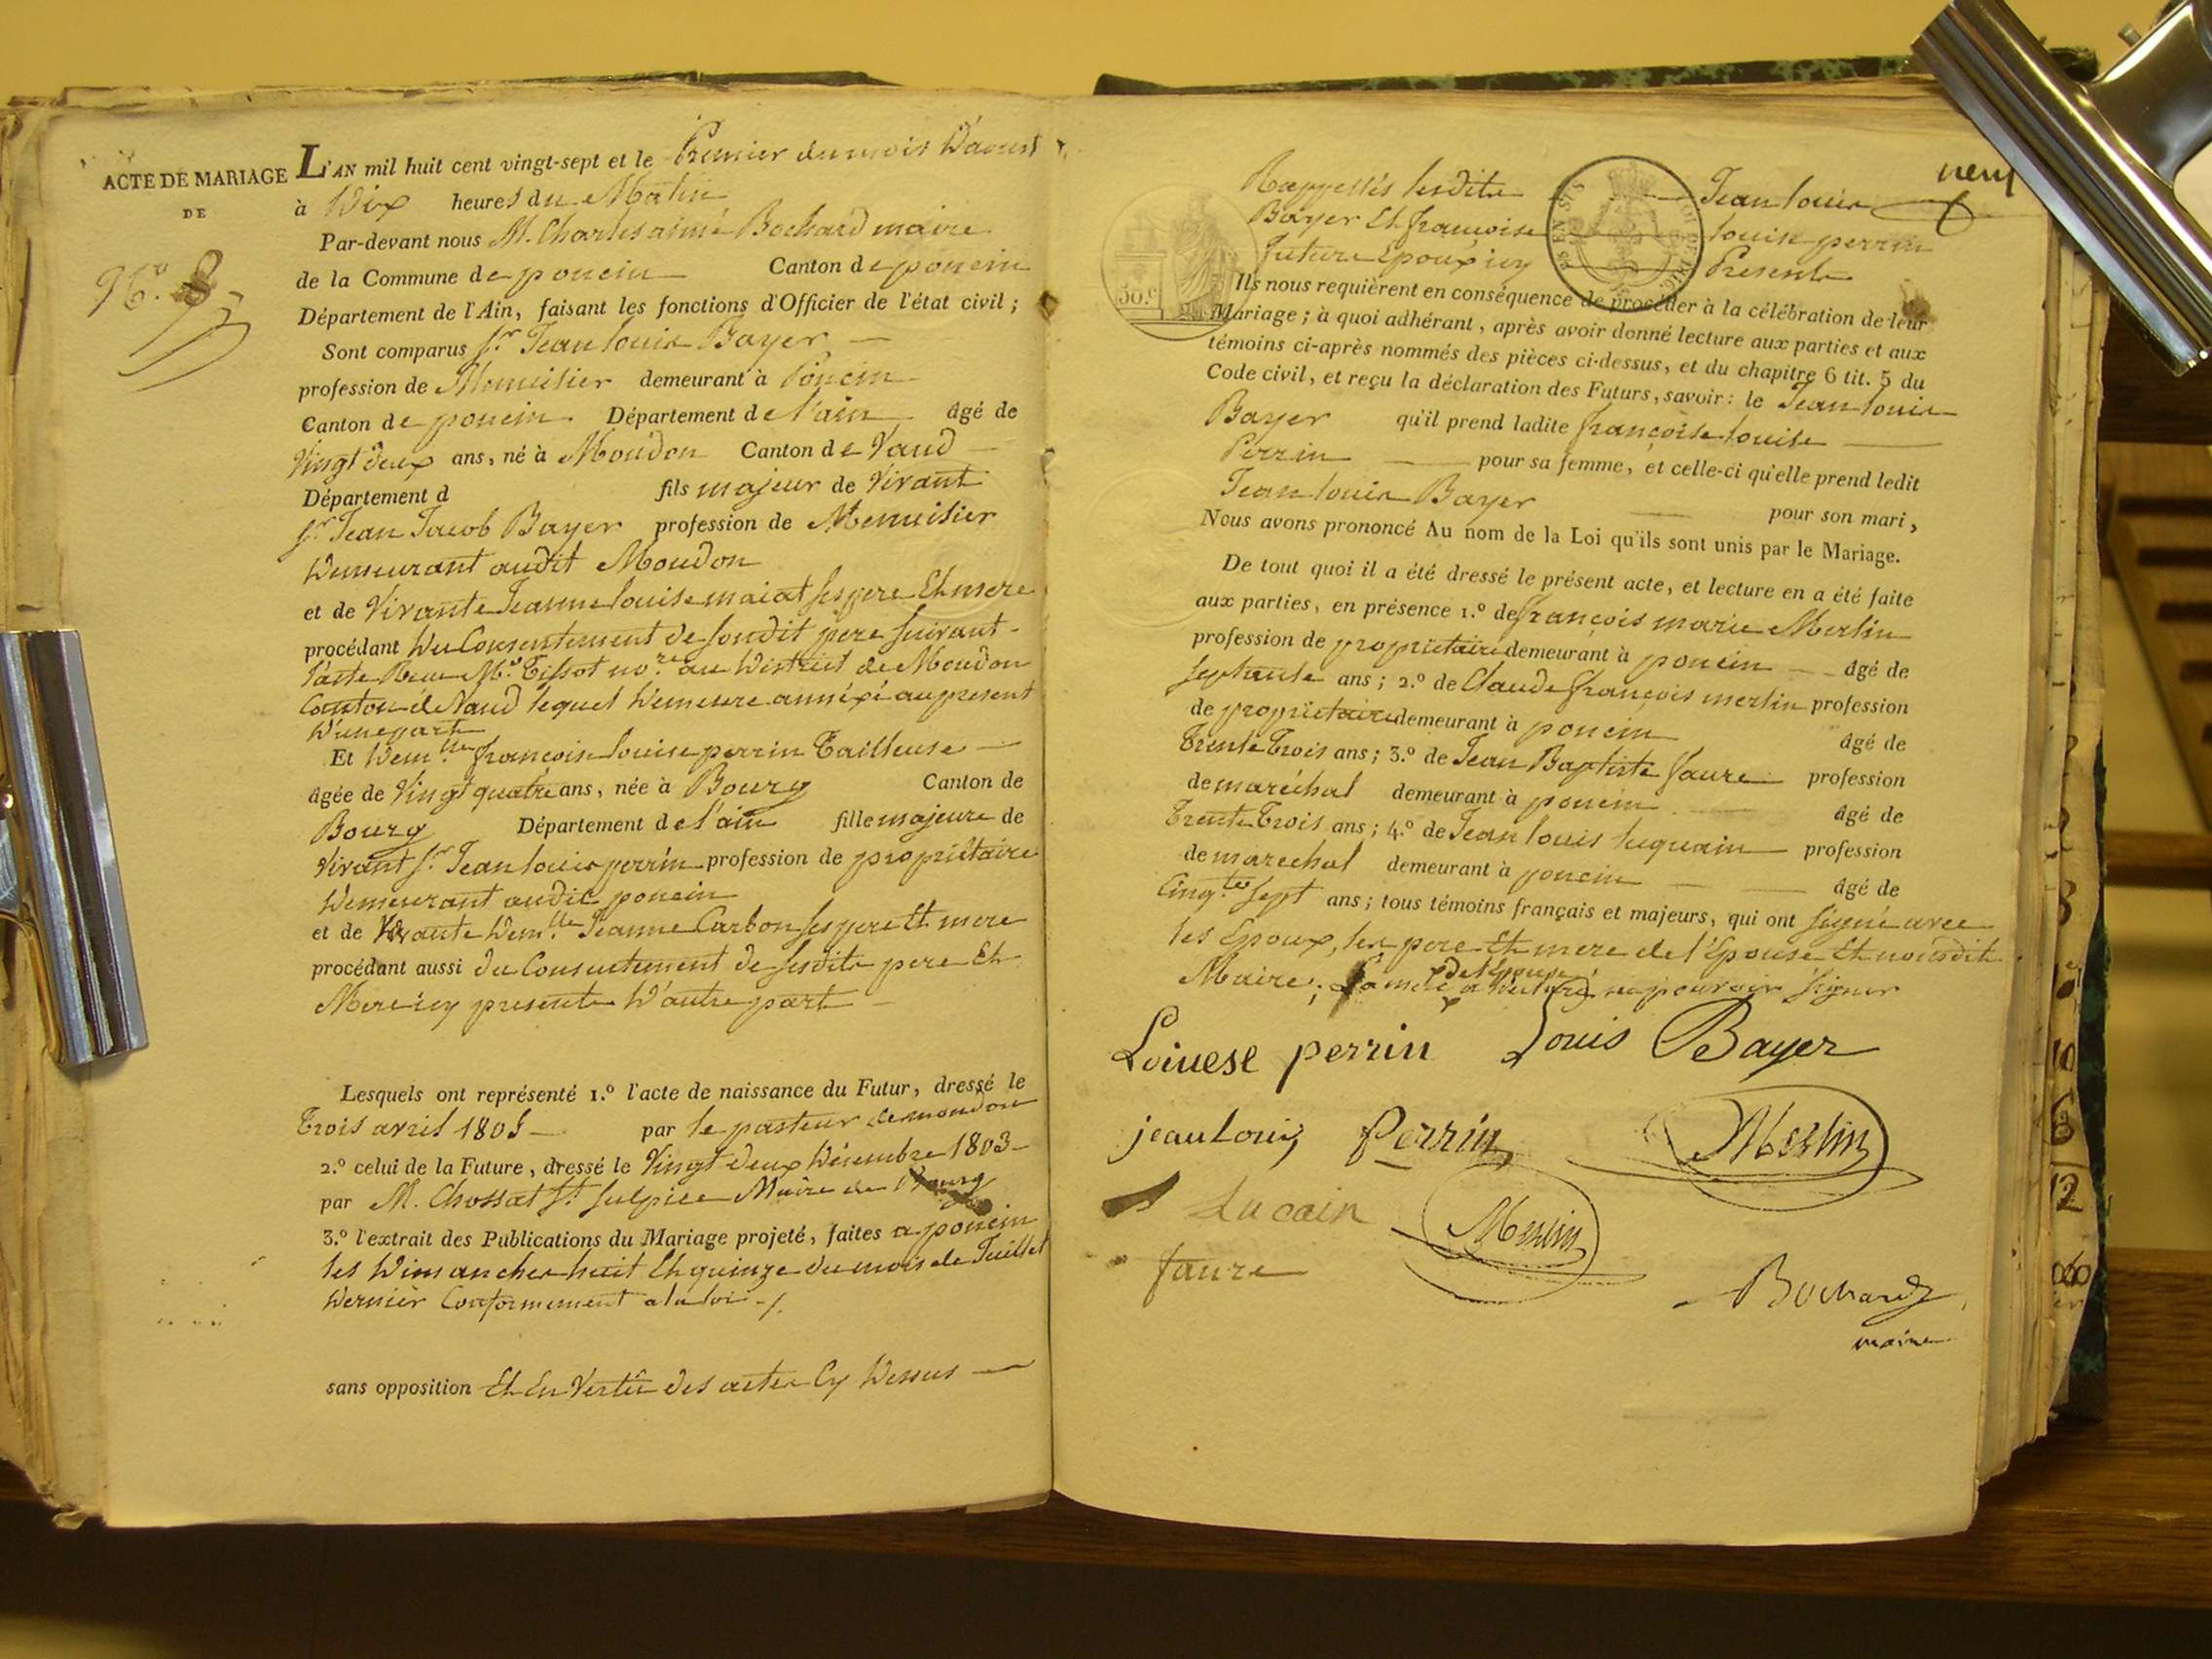 ACTE DE MARIAGE
DE
N.o
L'AN mil huit cent vingt-sept et le Premier du mois D'aoust
à Dix heures du Matin
Par-devant nous M. Charles aimé Bochard maire
de la Commune de poncin Canton de poncin
Département de l'Ain, faisant les fonctions d'Officier de l'état civil ;
Sont comparus Sr. Jean louis Bayer
profession de Menuisier demeurant à Poncin
Canton de poncin Département de l'ain âgé de
Vingt deux ans, né à Moudon Canton de Vaud
Département d fils majeur de Vivant
Sr. Jean Jacob Bayer profession de Menuisier
Demeurant audit Moudon
et de Vivante Jeanne louise maiat ses pere Et mere
procédant Du Consentement de Sondit pere Suivant
l'acte Recu Me. Tissot nore. au District de Moudon
Canton de Vaud lequel Demeure annéxé au present
D'une part
Et Demlle. françoise louise perrin Tailleuse
âgée de Vingt quatre ans, née à Bourg Canton de
Bourg Département de l'ain fille majeure de
Vivant Sr. Jean louis perrin profession de propriétaire
Demeurant audit poncin
et de Vivante Demlle. Jeanne Carbon ses pere Et mere
procédant aussi du Consentement de sesdits pere Et
Mere icy presents D'autre part
Lesquels ont représenté 1.º l'acte de naissance du Futur, dressé le
Trois avril 1805 par le pasteur de moudon
2.º celui de la Future, dressé le Vingt deux Décembre 1803
par M. Chossat St. Sulpice Maire de Bourg
3.º l'extrait des Publications du Mariage projeté, faites a poncin
les Dimanches huit Et quinze du mois de Juillet
Dernier Conformement a la loi
sans opposition Et En Vertu des actes Cy Dessus
neuf
Rappellés lesdits Jean louis
Bayer Et françoise louise perrin
futurs Epoux icy Presents
50.c
Ils nous requièrent en conséquence de procéder à la célébration de leur
Mariage ; à quoi adhérant, après avoir donné lecture aux parties et aux
témoins ci-après nommés des pièces ci-dessus, et du chapitre 6 tit. 5 du
Code civil, et reçu la déclaration des Futurs, savoir : le Jean louis
Bayer qu'il prend ladite françoise louise
Perrin pour sa femme, et celle-ci qu'elle prend ledit
Jean louis Bayer pour son mari,
Nous avons prononcé Au nom de la Loi qu'ils sont unis par le Mariage.
De tout quoi il a été dressé le présent acte, et lecture en a été faite
aux parties, en présence 1.º de françois marie Merlin
profession de propriétaire demeurant à poncin âgé de
septante ans ; 2.º de Claude françois merlin profession
de propriétaire demeurant à poncin âgé de
Trente Trois ans ; 3.º de Jean Baptiste faure profession
de maréchal demeurant à poncin âgé de
Trente Trois ans ; 4.º de Jean louis luquain profession
de maréchal demeurant à poncin âgé de
Cinqte Sept ans ; tous témoins français et majeurs, qui ont signé avec
les Epoux, les pere Et mere de l'Epouse Et nousdit
de l'épouse
Maire, La mere a declaré ne pouvoir signer
Loiuese perrin Louis Bayer
jean Louis Perrin Merlin
Lucain Merlin
faure
Bochard
maire
10
12